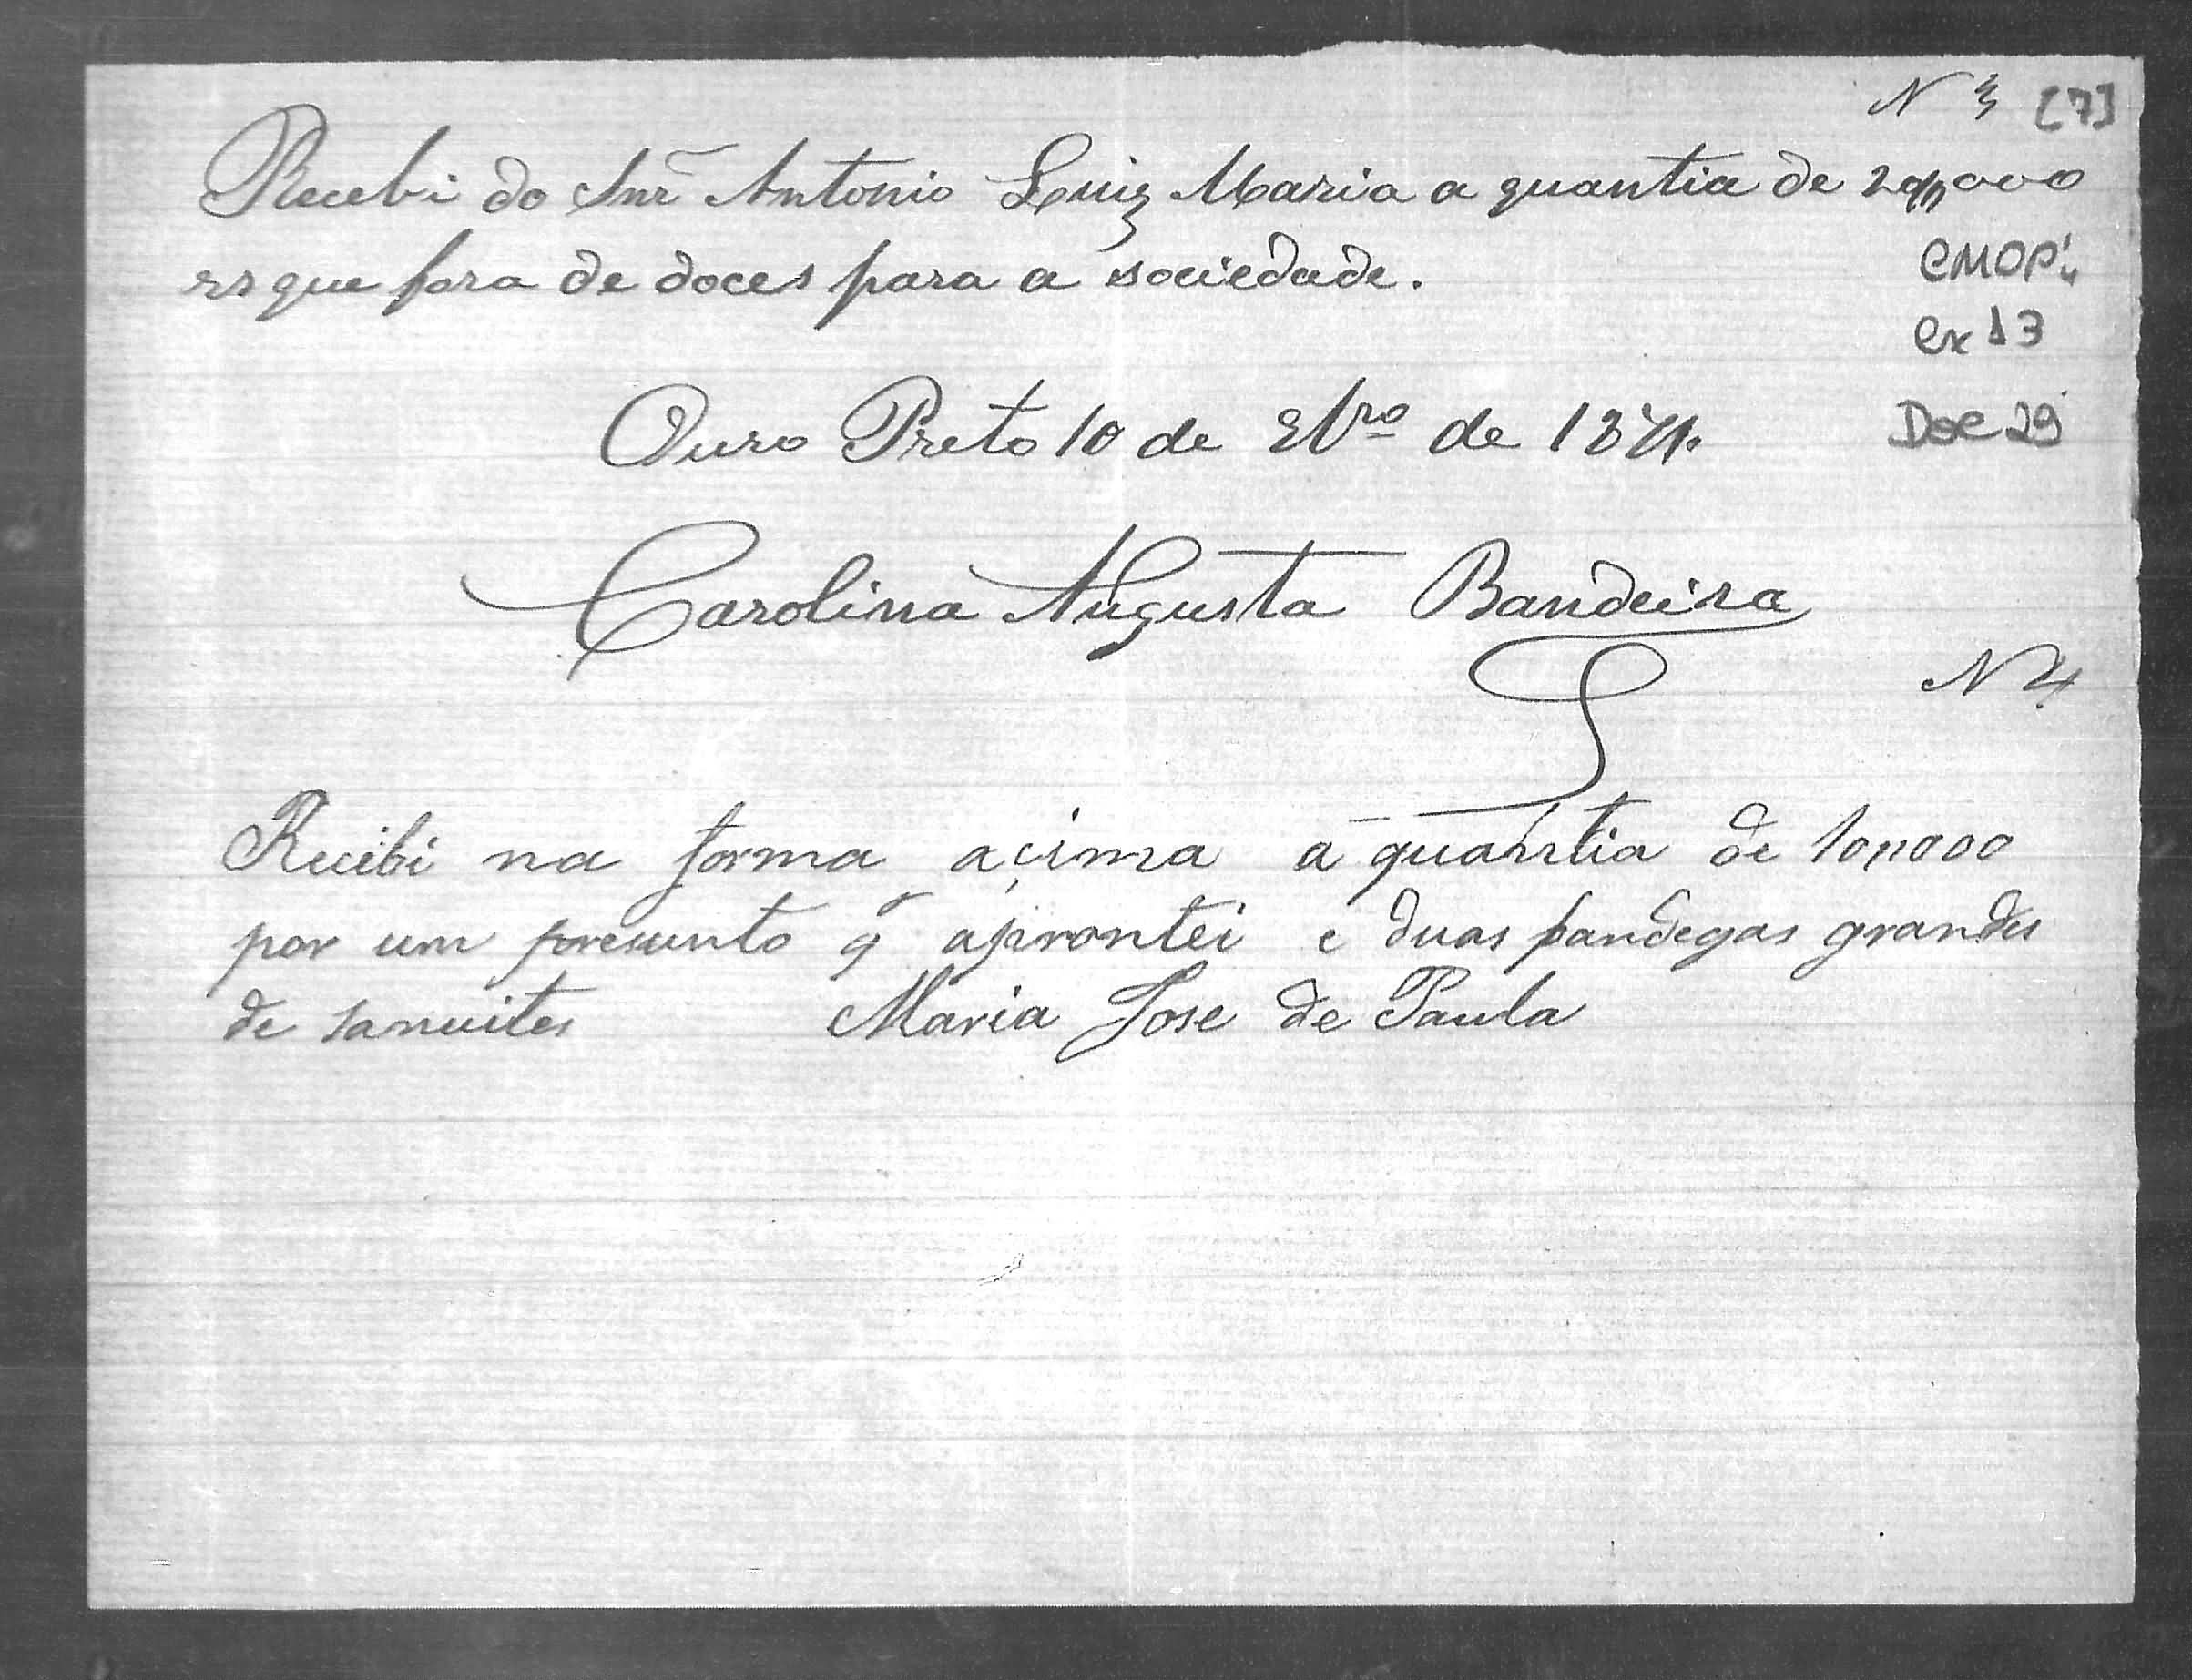 N 3 [7]
Recebi do Snr̃ Antonio Luiz Maria a quantia de 20$000
rs que fora de doces para a sociedade.
CMOP
Cx 13
Ouro Preto 10 de de 1871.
Doc 29
Carolina Augusta Bandeira
N 4
Recibi na forma açima a quantia de 10,,000
por um presunto q̃ aprontei e duas pandegas grandes
de sanuites Maria Jose de Paula